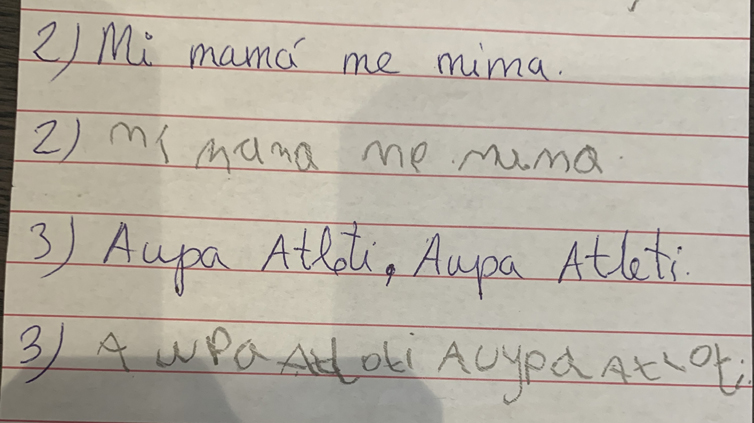 2) Mi mamá me mima.
2) mi mama me mima.
3) Aupa Atleti, Aupa Atleti.
3) A upa Atloti AUypa AtLoti.